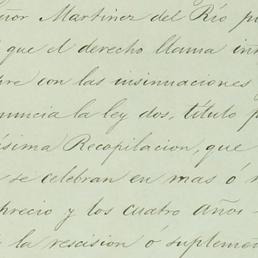 eñor Martinez del Río p
que el derecho llama in
re con las insinuaciones
nuncia la ley dos, título p
ísima Recopilacion, que
se celebran en mas ó
precio y los cuatro años
la rescision ó suplemen